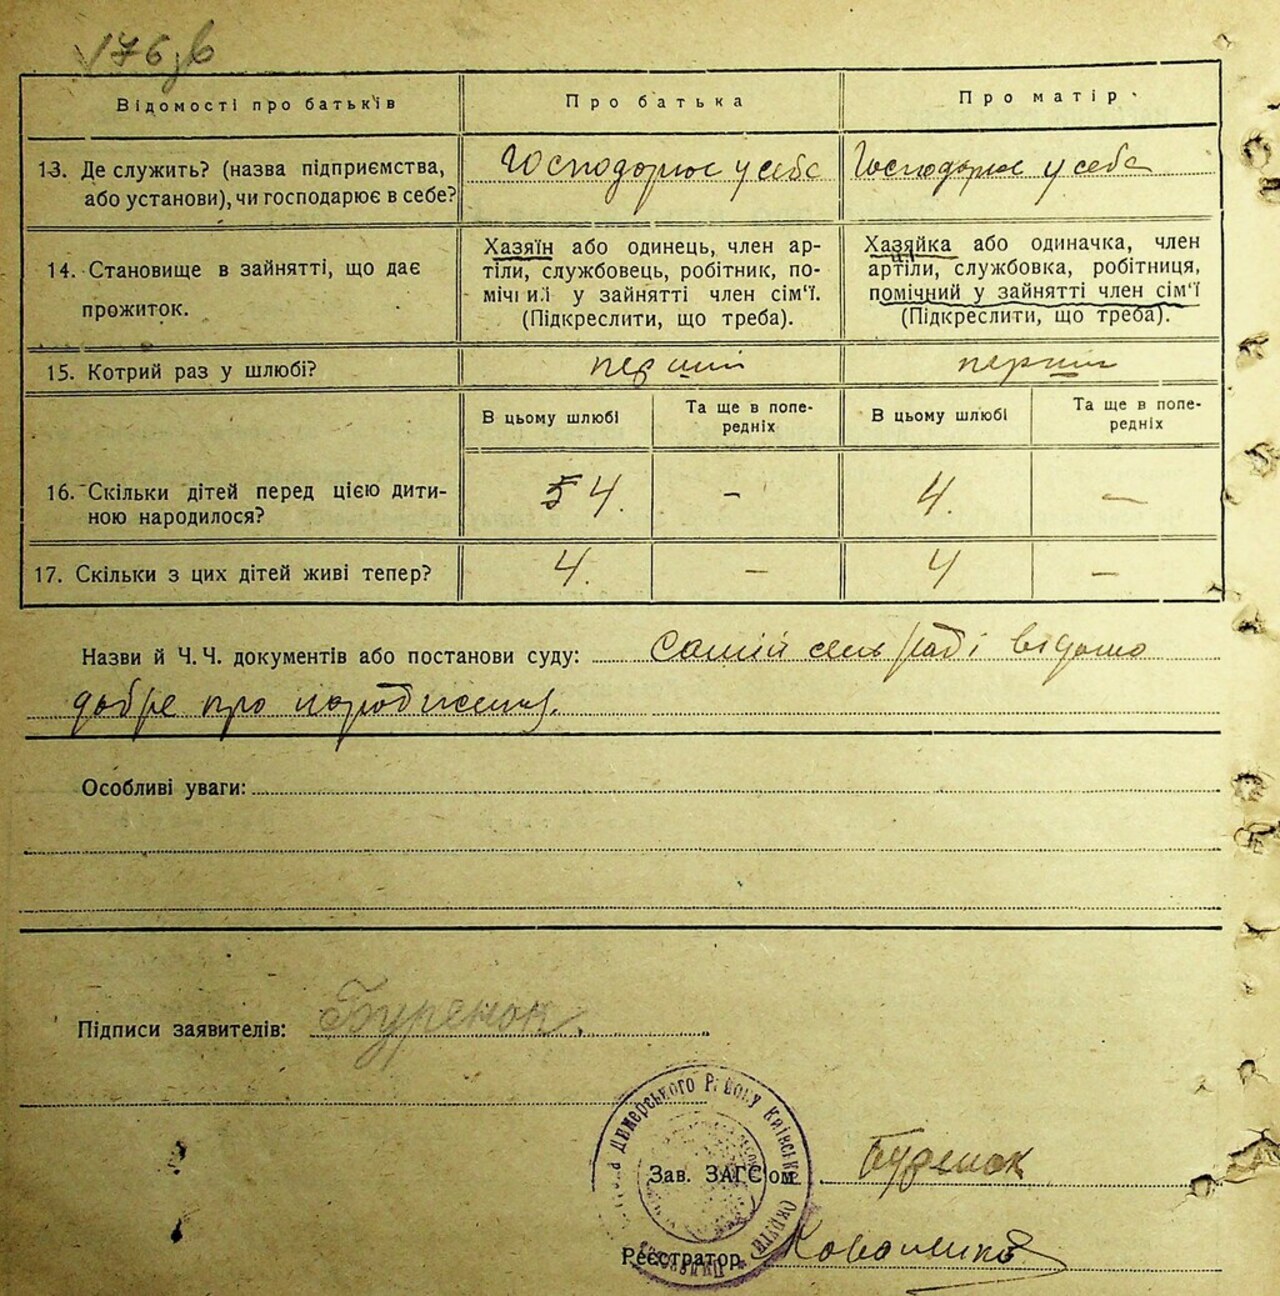 176зв
Відомості про батьків
Про батька
Про матір
13. Де служить? (назва підприємства,
або установи), чи господарює в себе?
Господорює у себе
Господорює у себе
14. Становище в зайнятті, що дає
прожиток.
Хазяїн або одинець, член ар-
тіли, службовець, робітник, по-
мічний у зайнятті член сім'ї.
(Підкреслити, що треба).
Хазяйка або одиначка, член
артіли, службовка, робітниця,
помічний у зайнятті член сім'ї
(Підкреслити, що треба).
15. Котрий раз у шлюбі?
перший
перший
В цьому шлюбі
Та ще в попе-
редніх
В цьому шлюбі
Та ще в попе-
редніх
16. Скільки дітей перед цією дити-
ною народилося?
4.
-
4.
-
17. Скільки з цих дітей живі тепер?
4.
-
4
-
Назви й Ч. Ч. документів або постанови суду: самій сель раді відомо
добре про народження.
Особливі уваги:
Підписи заявителів: Буренок
Димерського Району Київської Округи
Зав. ЗАГС'ом Буренок
Реєстратор Коваленко